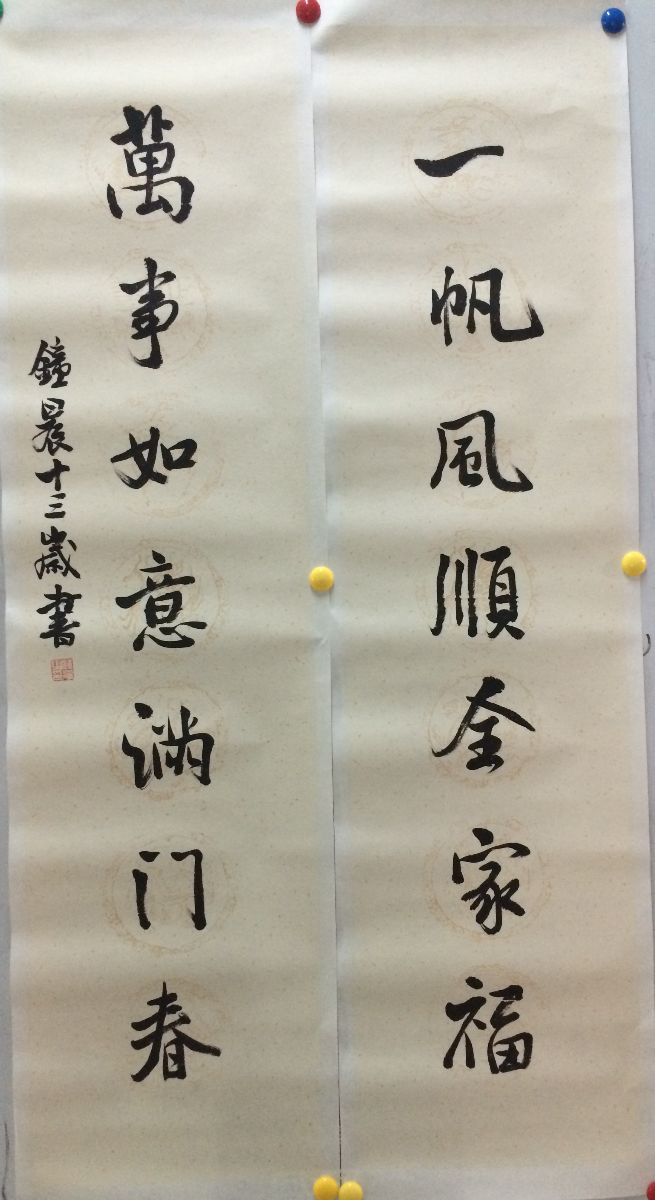 一帆風順全家福
萬事如意满门春
鐘晨十三歲書